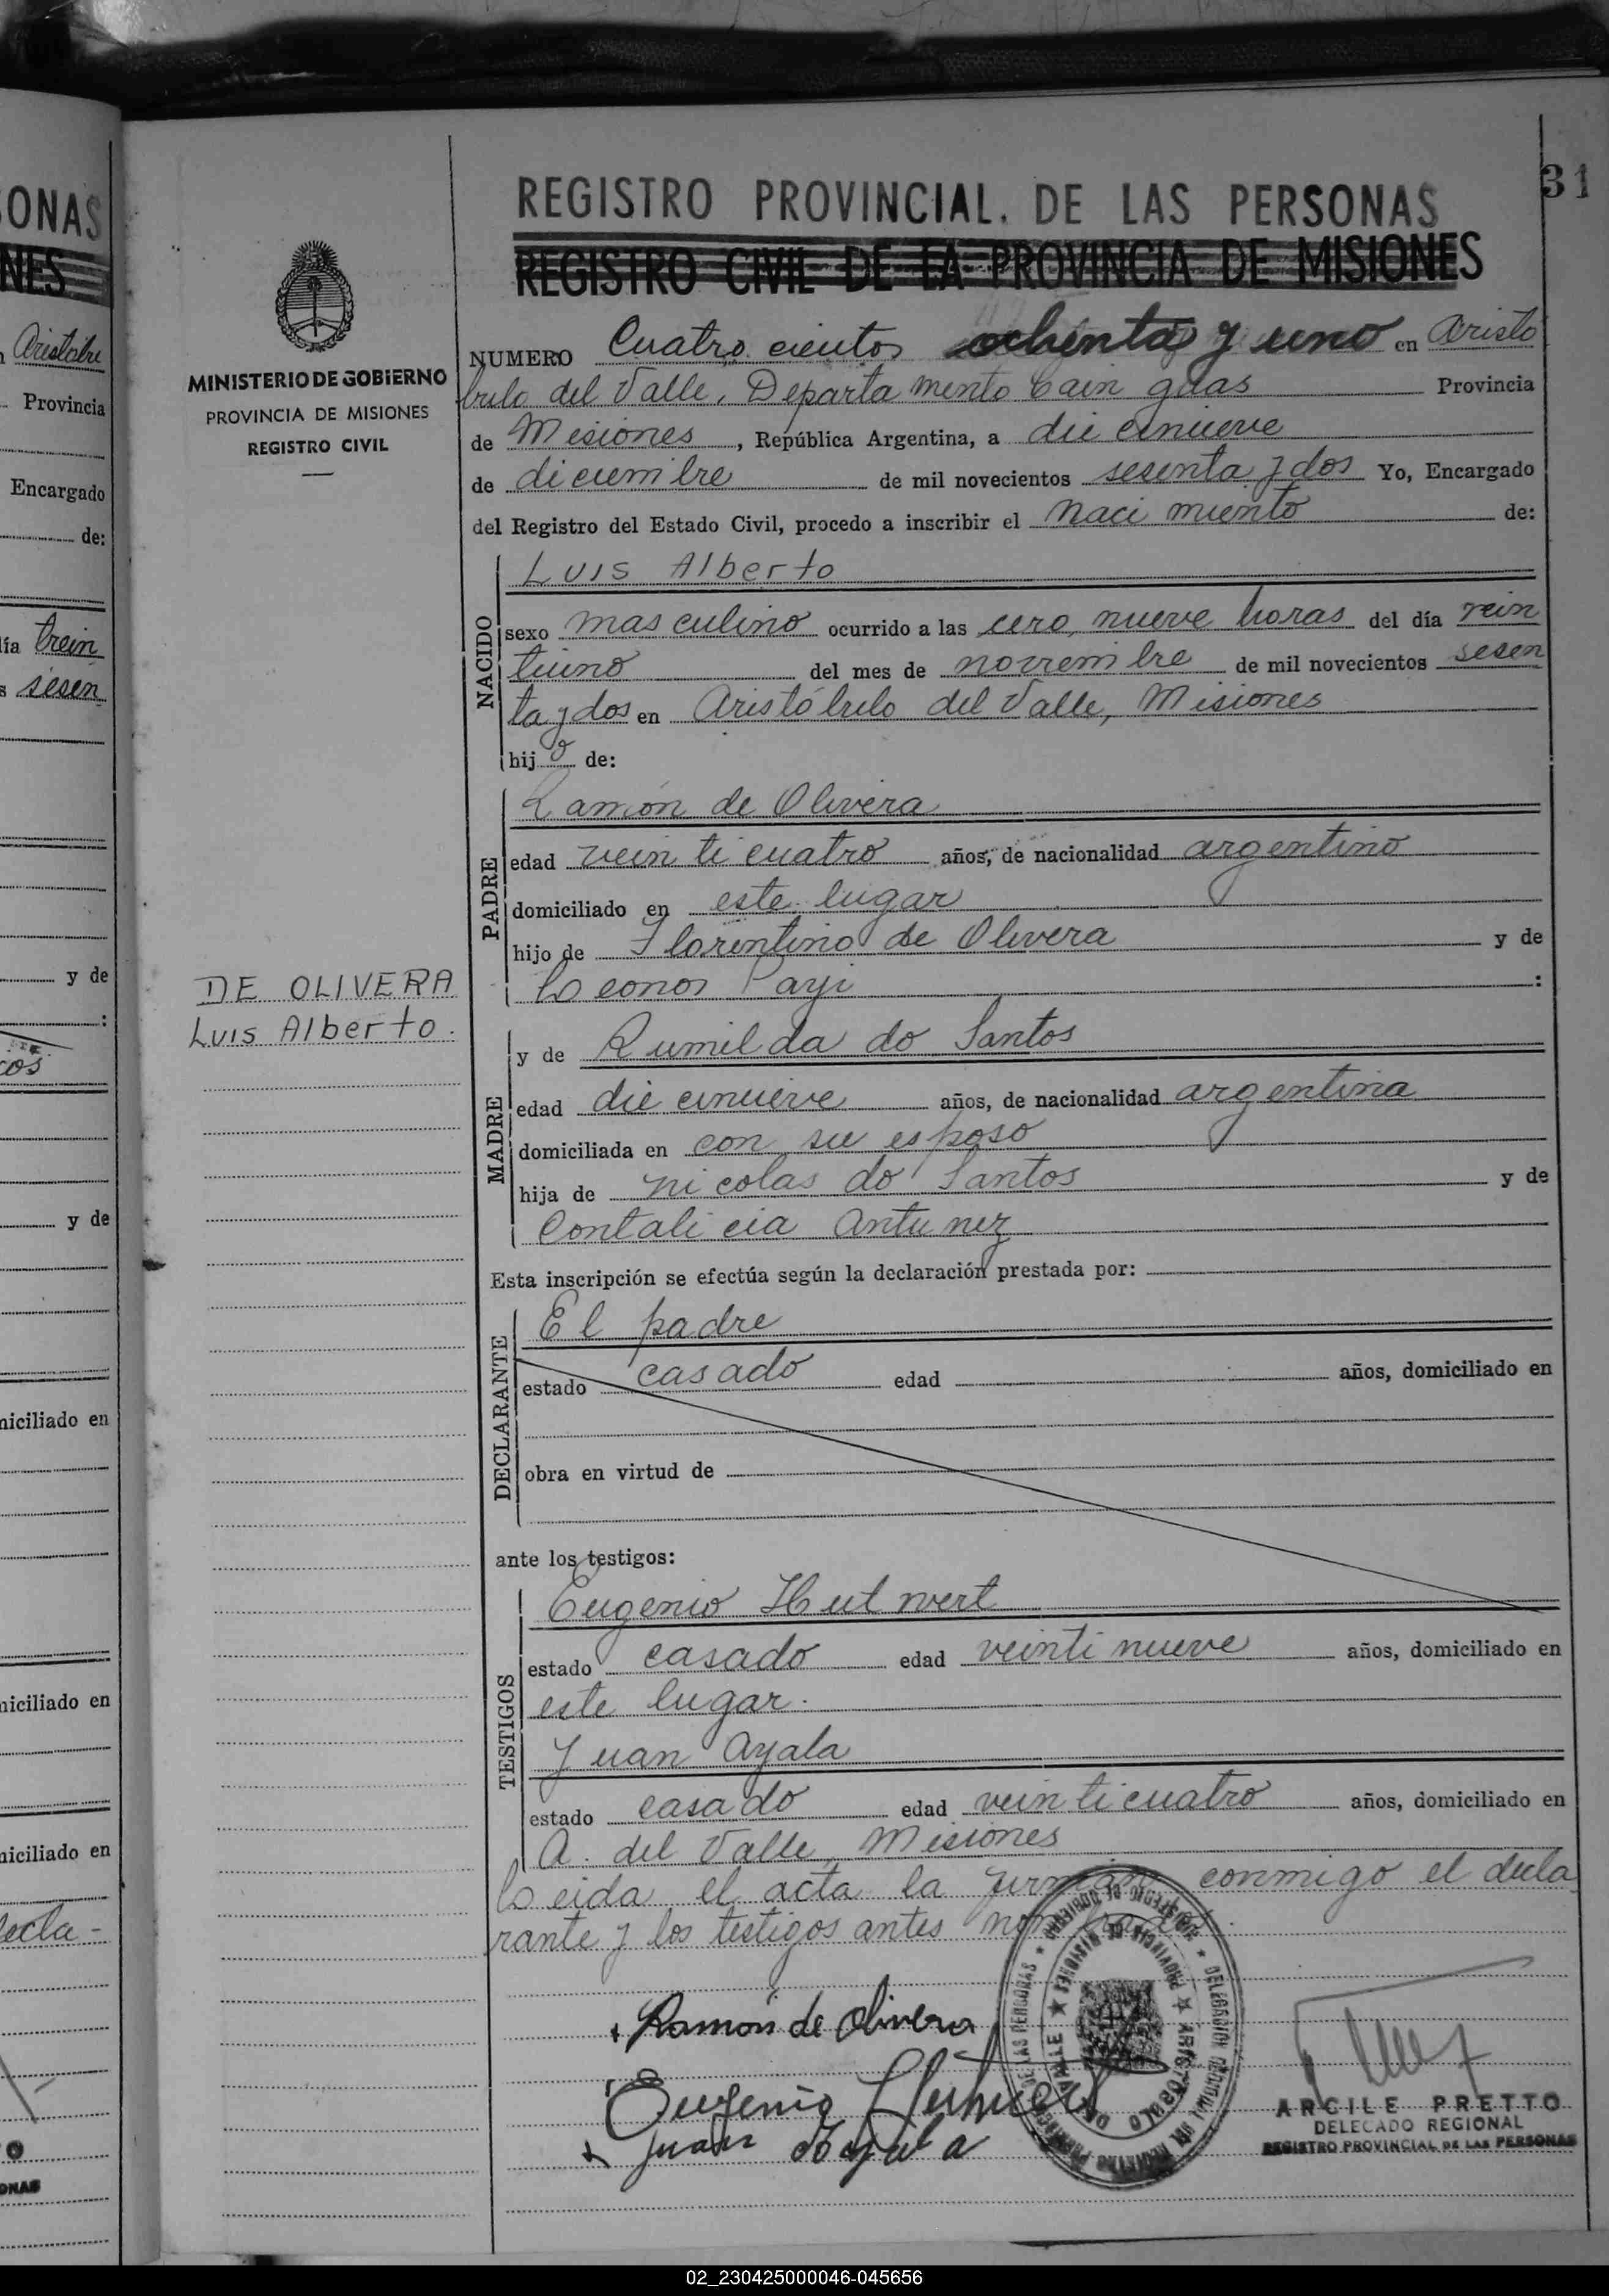 31
REGISTRO PROVINCIAL. DE LAS PERSONAS
REGISTRO CIVIL DE LA PROVINCIA DE MISIONES
MINISTERIO DE GOBIERNO
PROVINCIA DE MISIONES
REGISTRO CIVIL
DE OLIVERA
Luis Alberto.
NUMERO Cuatro cientos ochenta y uno en Aristo
bulo del Valle, Departa mento Cain guas Provincia
de Misiones, República Argentina, a die cinueve
de diciembre de mil novecientos sesenta y dos Yo, Encargado
del Registro del Estado Civil, procedo a inscribir el Naci miento de:
NACIDO
Luis Alberto
sexo masculino ocurrido a las cero, nueve horas del día vein
tiuno del mes de noviembre de mil novecientos sesen
ta y dos en Aristóbulo del Valle, Misiones
hijo de:
PADRE
Ramón de Olivera
edad vein ti cuatro años, de nacionalidad argentino
domiciliado en este lugar
hijo de Florentino de Olivera y de
Leonor :
MADRE
y de Rumilda do Santos
edad die cinueve años, de nacionalidad argentina
domiciliada en con su esposo
hija de Nicolas do Santos y de
Contalicia Antunez
Esta inscripción se efectúa según la declaración prestada por:
DECLARANTE
El padre
estado casado edad años, domiciliado en
obra en virtud de
ante los testigos:
TESTIGOS
Eugenio
estado casado edad veinti nueve años, domiciliado en
este lugar.
Juan Ayala
estado casado edad vein ti cuatro años, domiciliado en
A. del Valle, Misiones
Leida el acta la firman conmigo el decla
rante y los testigos antes nombrados.
Ramón de Olivera
Eugenio
Juan Ayala
ARCILE PRETTO
DELEGADO REGIONAL
REGISTRO PROVINCIAL DE LAS PERSONAS
02_230425000046-045656